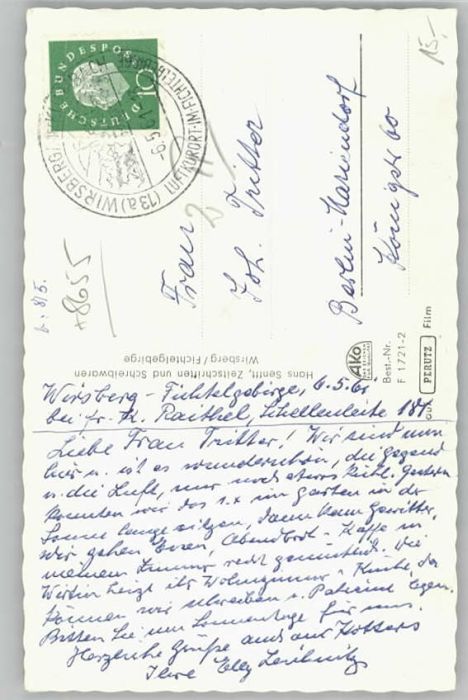 15.-
DEUTSCHE BUNDESPOST
10
(13a) WIRSBERG
LUFTKURORT IM FICHTELGEBIRGE
Frau
Joh. Tritter
Berlin-Mariendorf
Königstr 60
+8655
Hans Senfft, Zeitschriften und Schreibwaren
Wirsberg / Fichtelgebirge
AKO
Best.-Nr.
F 1721-2
PERUTZ Film
Wirsberg - Fichtelgebirge, 6.5.61
bei Fr. Raithel, Schellenleite 187
Liebe Frau Tritter! Wir sind nun
hier u. ist es wunderschön, die Gegend
u. die Luft, nur noch etwas kühl. Gestern
konnten wir das 1.x im Garten in der
Sonne lange sitzen, dann kam Gewitter.
Wir gehen Essen, Abendbrot - Kaffe in
meinem Zimmer recht gemütlich. Die
Wirtin heizt ihr Wohnzimmer - Küche, da
können wir schreiben u. Patience legen.
Bitten Sie um Sonnentage für uns.
Herzliche Grüße auch an
Ihre Elly Leibnitz